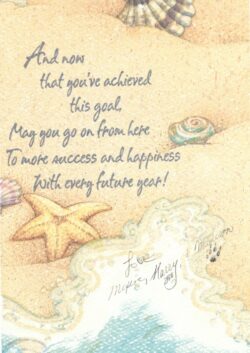 And now
that you've achieved
this goal,
May you go on from here
To more success and happiness
With every future year!
Love